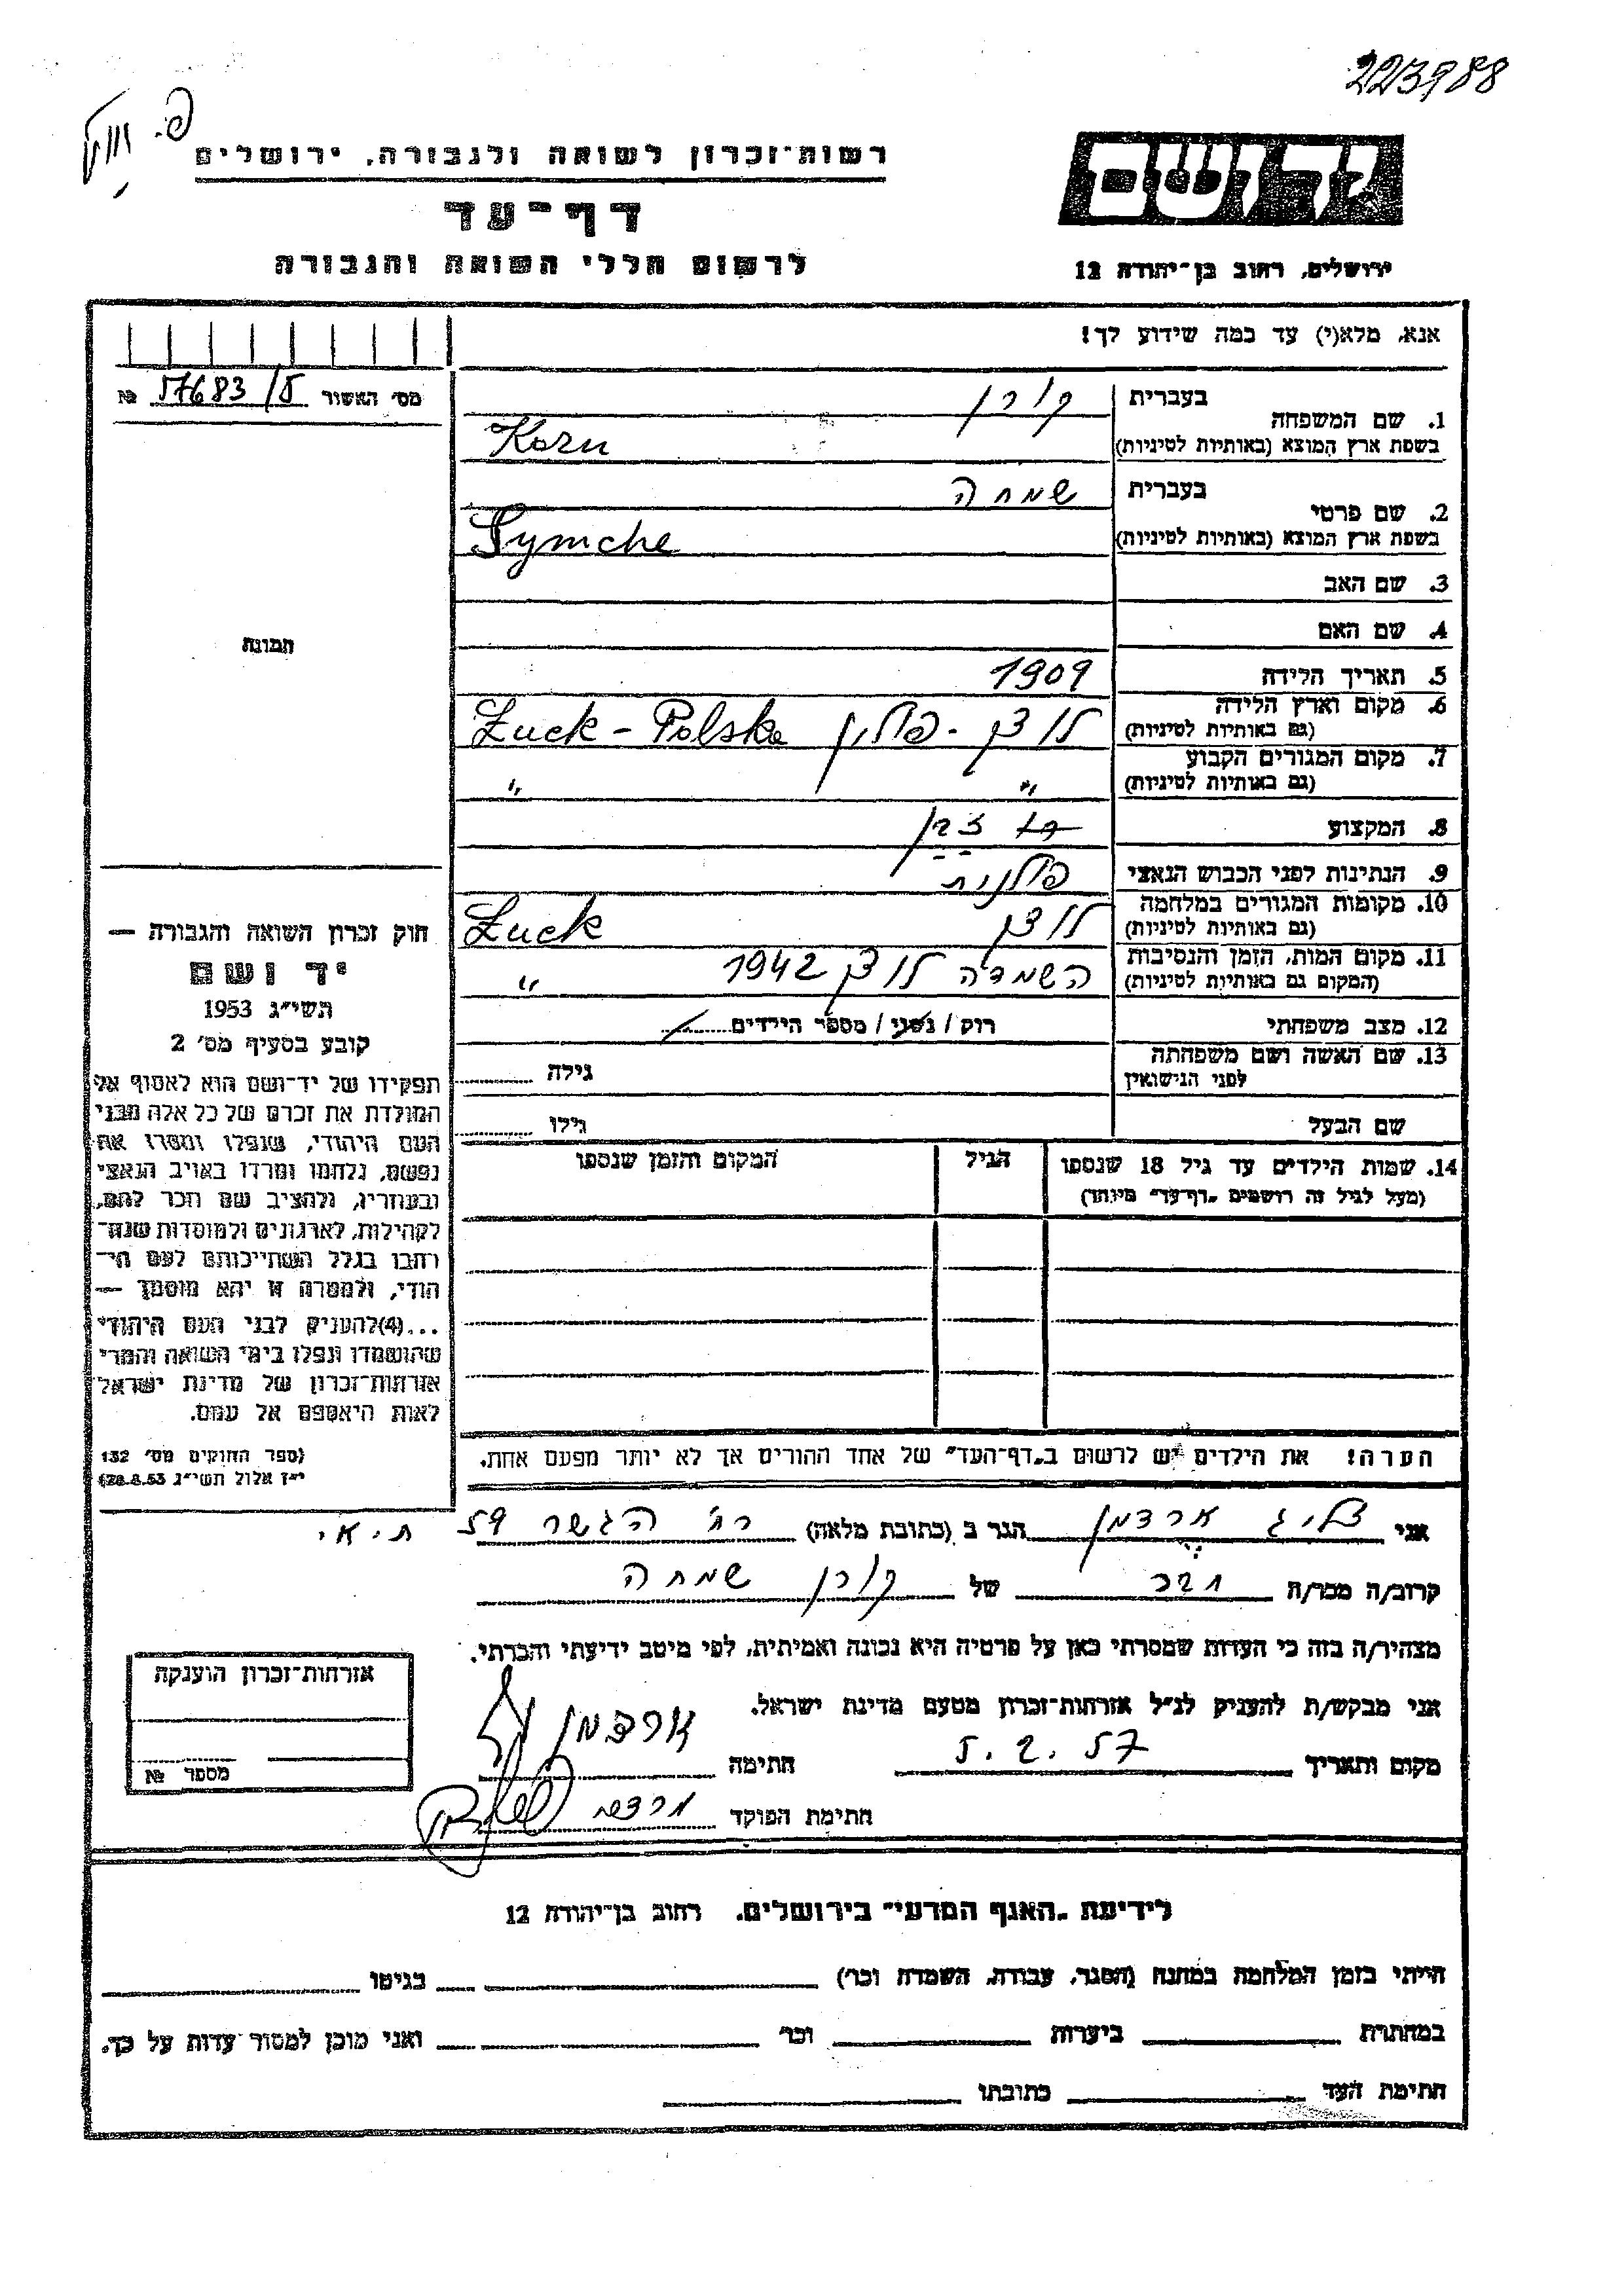 223988
רשות־זכרון לשואה ולגבורה, ירושלים
יד ושם
דף־עד
לרשום חללי השואה והגבורה
ירושלים, רחוב בן־יהודה 12
אנא, מלא(י) עד כמה שידוע לך!
מס' האשור 57683/5 №
1. שם המשפחה
בעברית קורן
בשפת ארץ המוצא (באותיות לטיניות) Korn
2. שם פרטי
בעברית שמחה
בשפת ארץ המוצא (באותיות לטיניות) Symche
3. שם האב
4. שם האם
תמונה
5. תאריך הלידה 1909
6. מקום וארץ הלידה
(גם באותיות לטיניות) לוצק - פולין Łuck - Polska
7. מקום המגורים הקבוע
(גם באותיות לטיניות) " "
8. המקצוע
9. הנתינות לפני הכבוש הנאצי פולנית
10. מקומות המגורים במלחמה
(גם באותיות לטיניות) לוצק Łuck
11. מקום המות, הזמן והנסיבות
(המקום גם באותיות לטיניות) השמדה לוצק 1942 "
12. מצב משפחתי רוק / נשוי / מספר הילדים
13. שם האשה ושם משפחתה
לפני הנישואין גילה
שם הבעל גילו
14. שמות הילדים עד גיל 18 שנספו
(מעל לגיל זה רושמים „דף־עד" מיוחד)
הגיל
המקום והזמן שנספו
הערה! את הילדים יש לרשום ב„דף־העד" של אחד ההורים אך לא יותר מפעם אחת.
חוק זכרון השואה והגבורה —
יד ושם
תשי"ג 1953
קובע בסעיף מס' 2
תפקידו של יד־ושם הוא לאסוף אל
המולדת את זכרם של כל אלה מבני
העם היהודי, שנפלו ומסרו את
נפשם, נלחמו ומרדו באויב הנאצי
ובעוזריו, ולהציב שם וזכר להם,
לקהילות, לארגונים ולמוסדות שנח־
רבו בגלל השתייכותם לעם הי־
הודי, ולמטרה זו יהא מוסמך —
...(4)להעניק לבני העם היהודי
שהושמדו ונפלו בימי השואה והמרי
אזרחות־זכרון של מדינת ישראל
לאות היאספם אל עמם.
(ספר החוקים מס' 132
י"ז אלול תשי"ג 28.8.53)
אני זליג ארדמן הגר ב (כתובת מלאה) רח' הגשר 59 ת"א
קרוב/ה מכר/ה חבר של קורן שמחה
מצהיר/ה בזה כי העדות שמסרתי כאן על פרטיה היא נכונה ואמיתית, לפי מיטב ידיעתי והכרתי.
אני מבקש/ת להעניק לנ"ל אזרחות־זכרון מטעם מדינת ישראל.
מקום ותאריך 5.2.57 חתימה ארדמן
חתימת הפוקד
אזרחות־זכרון הוענקה
מספר №
לידיעת „האגף המדעי" בירושלים, רחוב בן־יהודה 12
הייתי בזמן המלחמה במחנה (הסגר, עבודה, השמדה וכו') בגיטו
במחתרת ביערות וכו' ואני מוכן למסור עדות על כך.
חתימת העד כתובתו